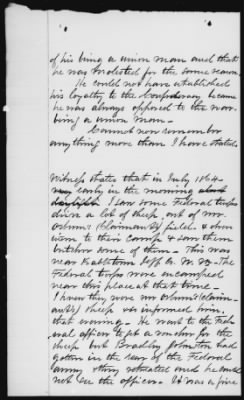 of his being a union man and that
he was molested for the same reason
He could not have established
his loyalty to the Confederacy because
he was always opposed to the war.
being a union man –
Cannot now remember
anything more than I have stated.
Witness states that in July 1864
early in the morning
I saw some Federal troops
drive a lot of sheep out of mr.
Osburns (Claimants) field. & drove
them to their camp & saw them
butcher some of them – This was
near Jeff Co. W. Va – The
Federal troops were encamped
near this place at that time –
I knew they were mr Osburns (claim-
ants) sheep & informed him,
that evening – He went to the Fed-
eral officer to get a voucher for the
sheep but Bradley Johnston had
gotten in the rear of the Federal
army & they retreated and he could
not see the officer – It was a fine